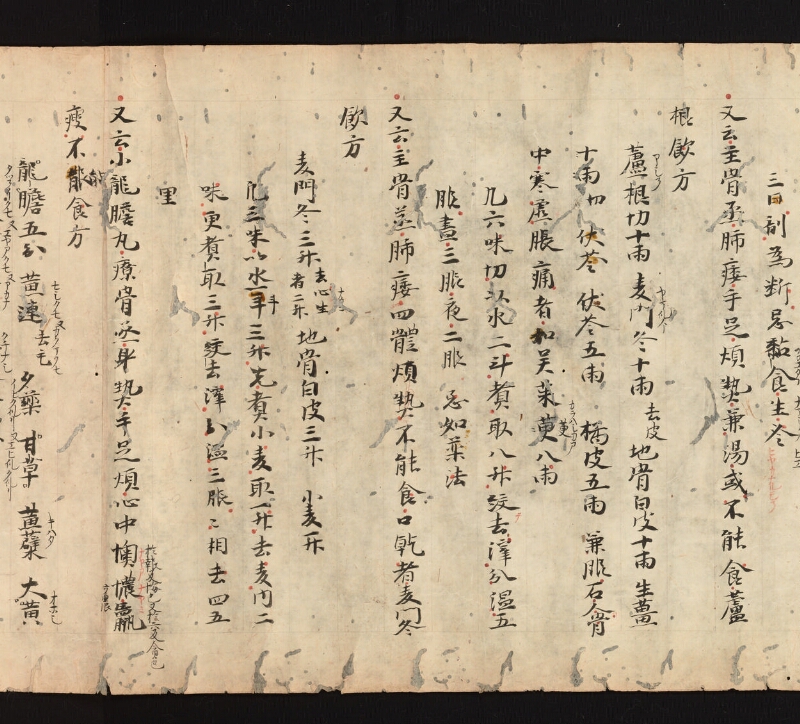 三日剤為断忌黏食生冷
又云主骨蒸肺痿手足煩熱兼湯或不能食蘆
根飲方
蘆根切十兩麦門冬十兩去皮地骨白皮十兩生薑
十兩切茯苓茯苓五兩橘皮五兩兼服石人骨
中寒虚脹痛者加呉茱萸八兩
凢六味切以水二斗煮取八升絞去滓分温五
服晝三服夜二服忌如薬法
又云主骨蒸肺痿四體煩熱不能食口乾者麦門冬
飲方
麦門冬三升去心生者二升地骨白皮三升小麦一升
凢三味以水一斗三升先煮小麦取一升去麦内二
味更煮取三升絞去滓分温三服〻相去四五
里
又云小龍膽丸療骨蒸身熱手足煩心中懊憹羸
痩不能食方
龍膽五分黄連去毛夕藥甘草黄蘗大黄